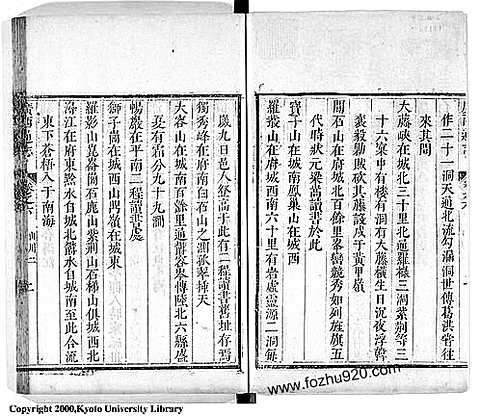 作二十一洞天道北流勾漏洞世傳葛洪嘗往
來其間
大藤峽在城北三十里北連羅祿三洞紫荆等三
十六寨中有樓有洞有大藤橫生日沉夜浮
襄毅勦賊砍其藤設戍于黃甲嶺
閬石山在府城北百餘里峯巒競秀如列旌旗五
代時狀元梁嵩讀書於此
寶子山在城南鳳巢山在城西
羅叢山在府城西南六十里有岩虛靈源二洞每
歲九日邑人登高于此有二程讀書舊址存焉
獨秀峰在府南白石山之測孤翠挿天
大容山在城南百餘里連鬱容岑博陸北六縣盛
夏有霜分九十九澗
暢巖在平南二程讀書處
獅子崗在城西山門嶺在城東
羅影山崑崙崗石鹿山紫荆山石梯山俱城西北
潯江在府東黔水自城北鬱水自城南至此合流
東下蒼梧入于南海
廣西通志 卷之六 山川二
www.fozhu920.com
Copyright 2000,Kyoto University Library